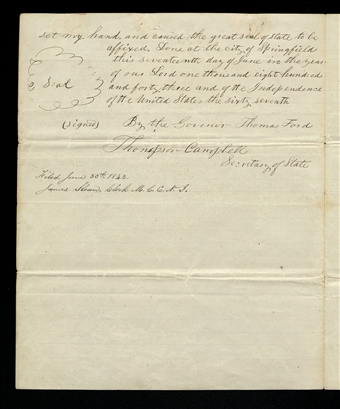 set my hand and caused the great seal of state to be
affixed. Done at the city of Springfield
this seventeenth day of June in the year
of our Lord one thousand eight hundred
Seal and forty three and of the Independence
of the United States the sixty seventh
(signed) By the Governor Thomas Ford
Thompson Campbell
Secretary of State
Filed June 30th 1843.
James Sloan, Clerk M. C. C. A. I.